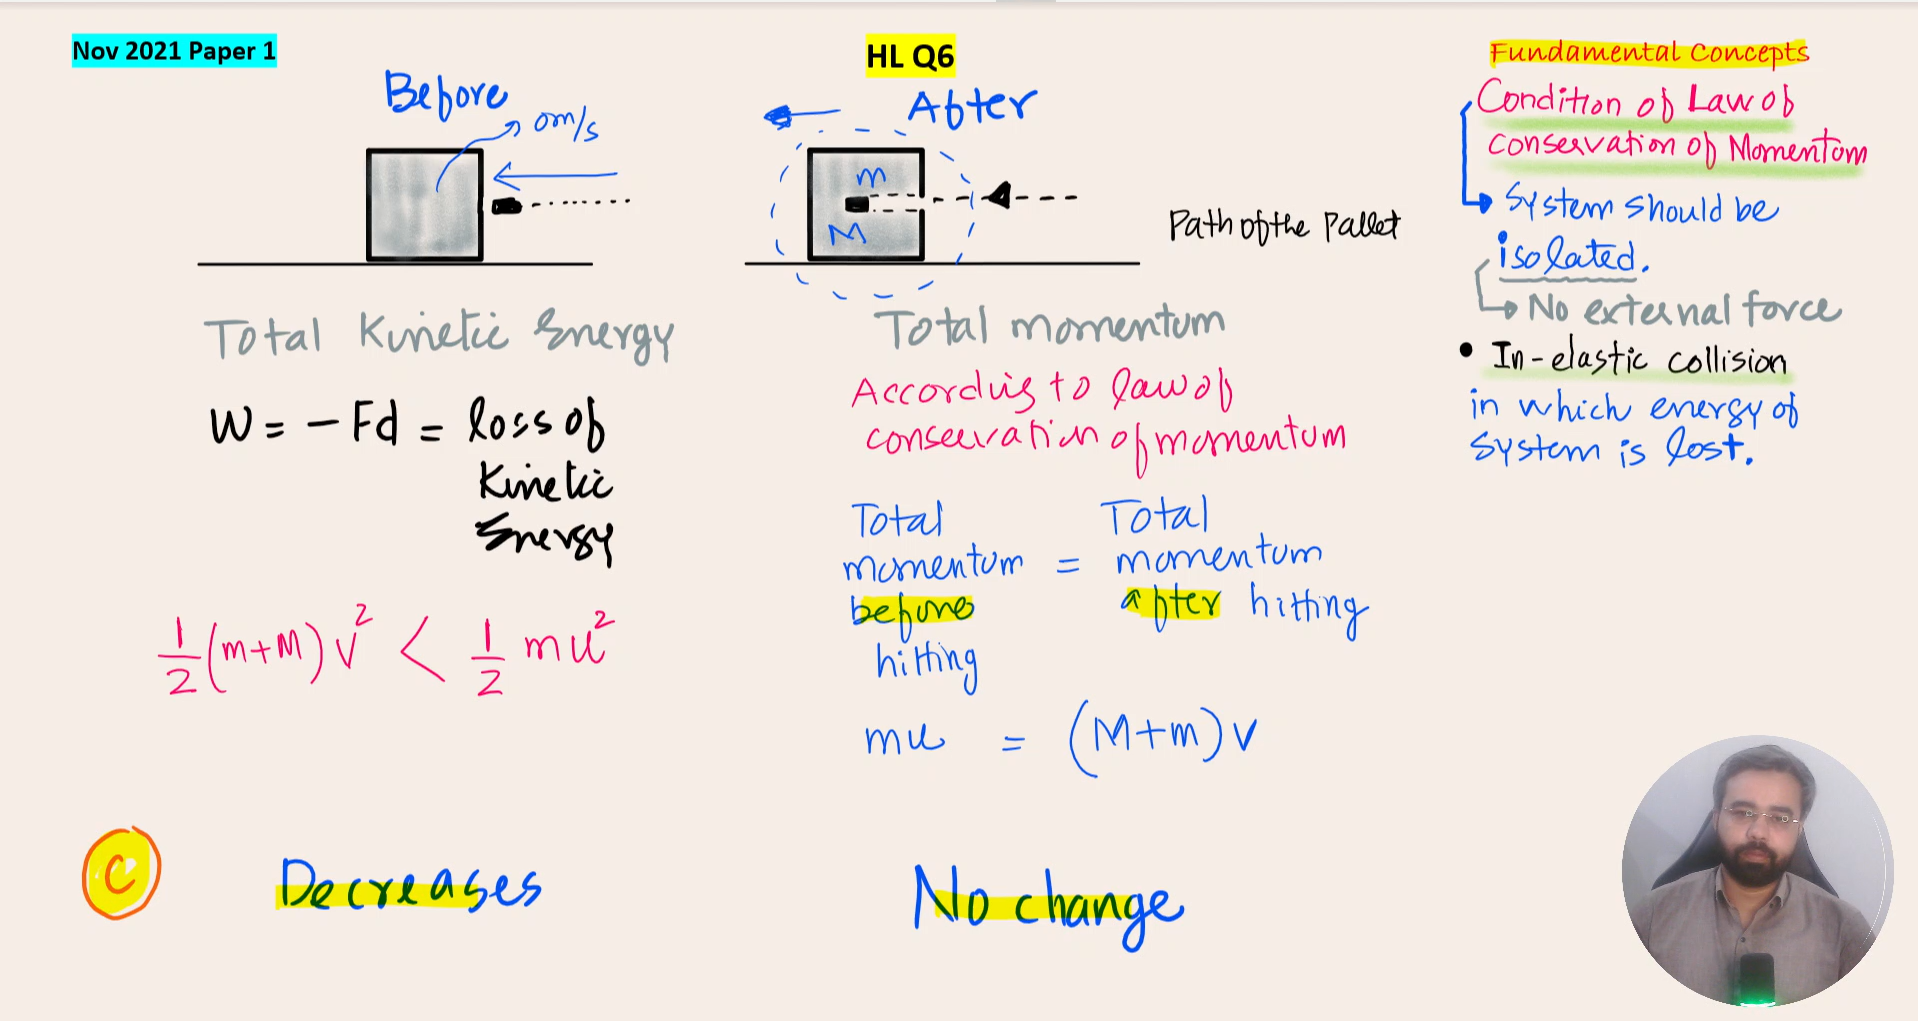 Nov 2021 Paper 1
HL Q6
Before
0m/s
After
m
M
Path of the Pallet
Total Kinetic Energy
W = - Fd = loss of
Kinetic
Energy
1/2 (m+M) v² < 1/2 mu²
Total momentum
According to law of
conservation of momentum
Total
momentum
before
hitting
=
Total
momentum
after hitting
mu = (M+m) v
C
Decreases
No change
Fundamental Concepts
Condition of Law of
conservation of Momentum
System should be
isolated.
No external force
• In-elastic collision
in which energy of
system is lost.